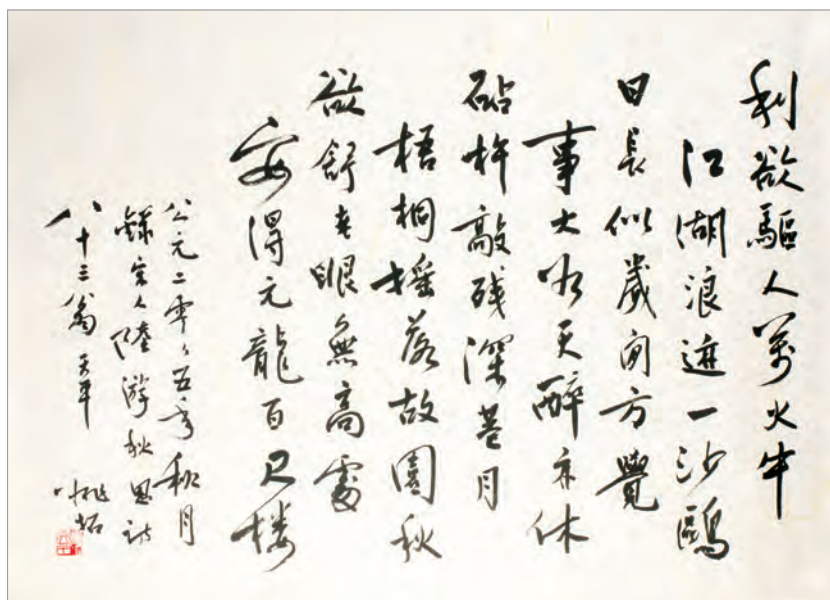 利欲驅人萬火牛
江湖浪迹一沙鷗
日長似歲閒方覺
事大如天醉亦休
砧杵敲残深巷月
梧桐摇落故園秋
欲舒老眼無高處
安得元龍百尺楼
公元二零々五年秋月
錄宋人陸游秋思詩
八十三翁天平 姚拓